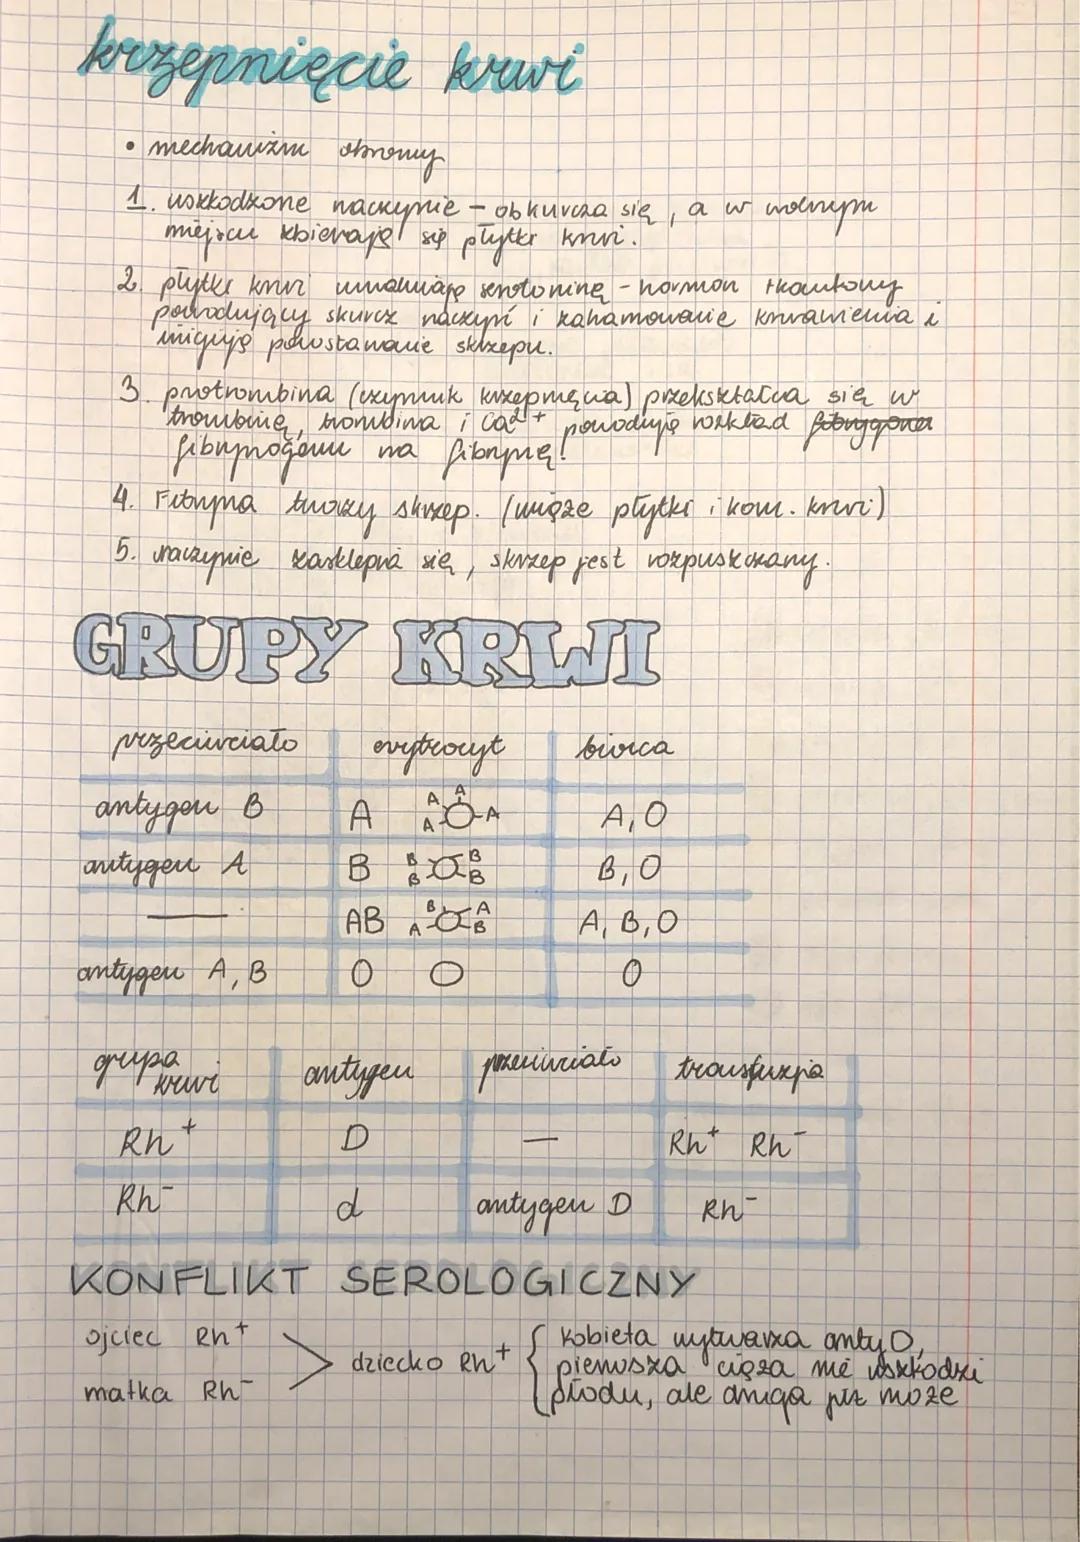 krzepnięcie krwi
• mechanizm obronny
1. uszkodzone naczynie – obkurcza się, a w wolnym
miejscu zbierają się płytki krwi.
2. płytki krwi uwalniają serotoninę – hormon tkankowy
powodujący skurcz naczyń i zahamowanie krwawienia i
inicjują powstawanie skrzepu.
3. protrombina (czynnik krzepnięcia) przekształca się w
trombinę, trombina i Ca²⁺ powodują rozkład
fibrynogenu na fibrynę!
4. Fibryna tworzy skrzep. (wiąże płytki i kom. krwi)
5. naczynie zasklepia się, skrzep jest rozpuszczany.
GRUPY KRWI
przeciwciało erytrocyt biorca
antygen B A A A A A A A, O
antygen A B B B B B B, O
— AB B A A B A, B, O
antygen A, B O O
grupa krwi antygen przeciwciało transfuzja
Rh⁺ D — Rh⁺ Rh⁻
Rh⁻ d antygen D Rh⁻
KONFLIKT SEROLOGICZNY
ojciec Rh⁺
matka Rh⁻
> dziecko Rh⁺
kobieta wytwarza anty D,
pierwsza ciąża nie uszkodzi
płodu, ale druga już może